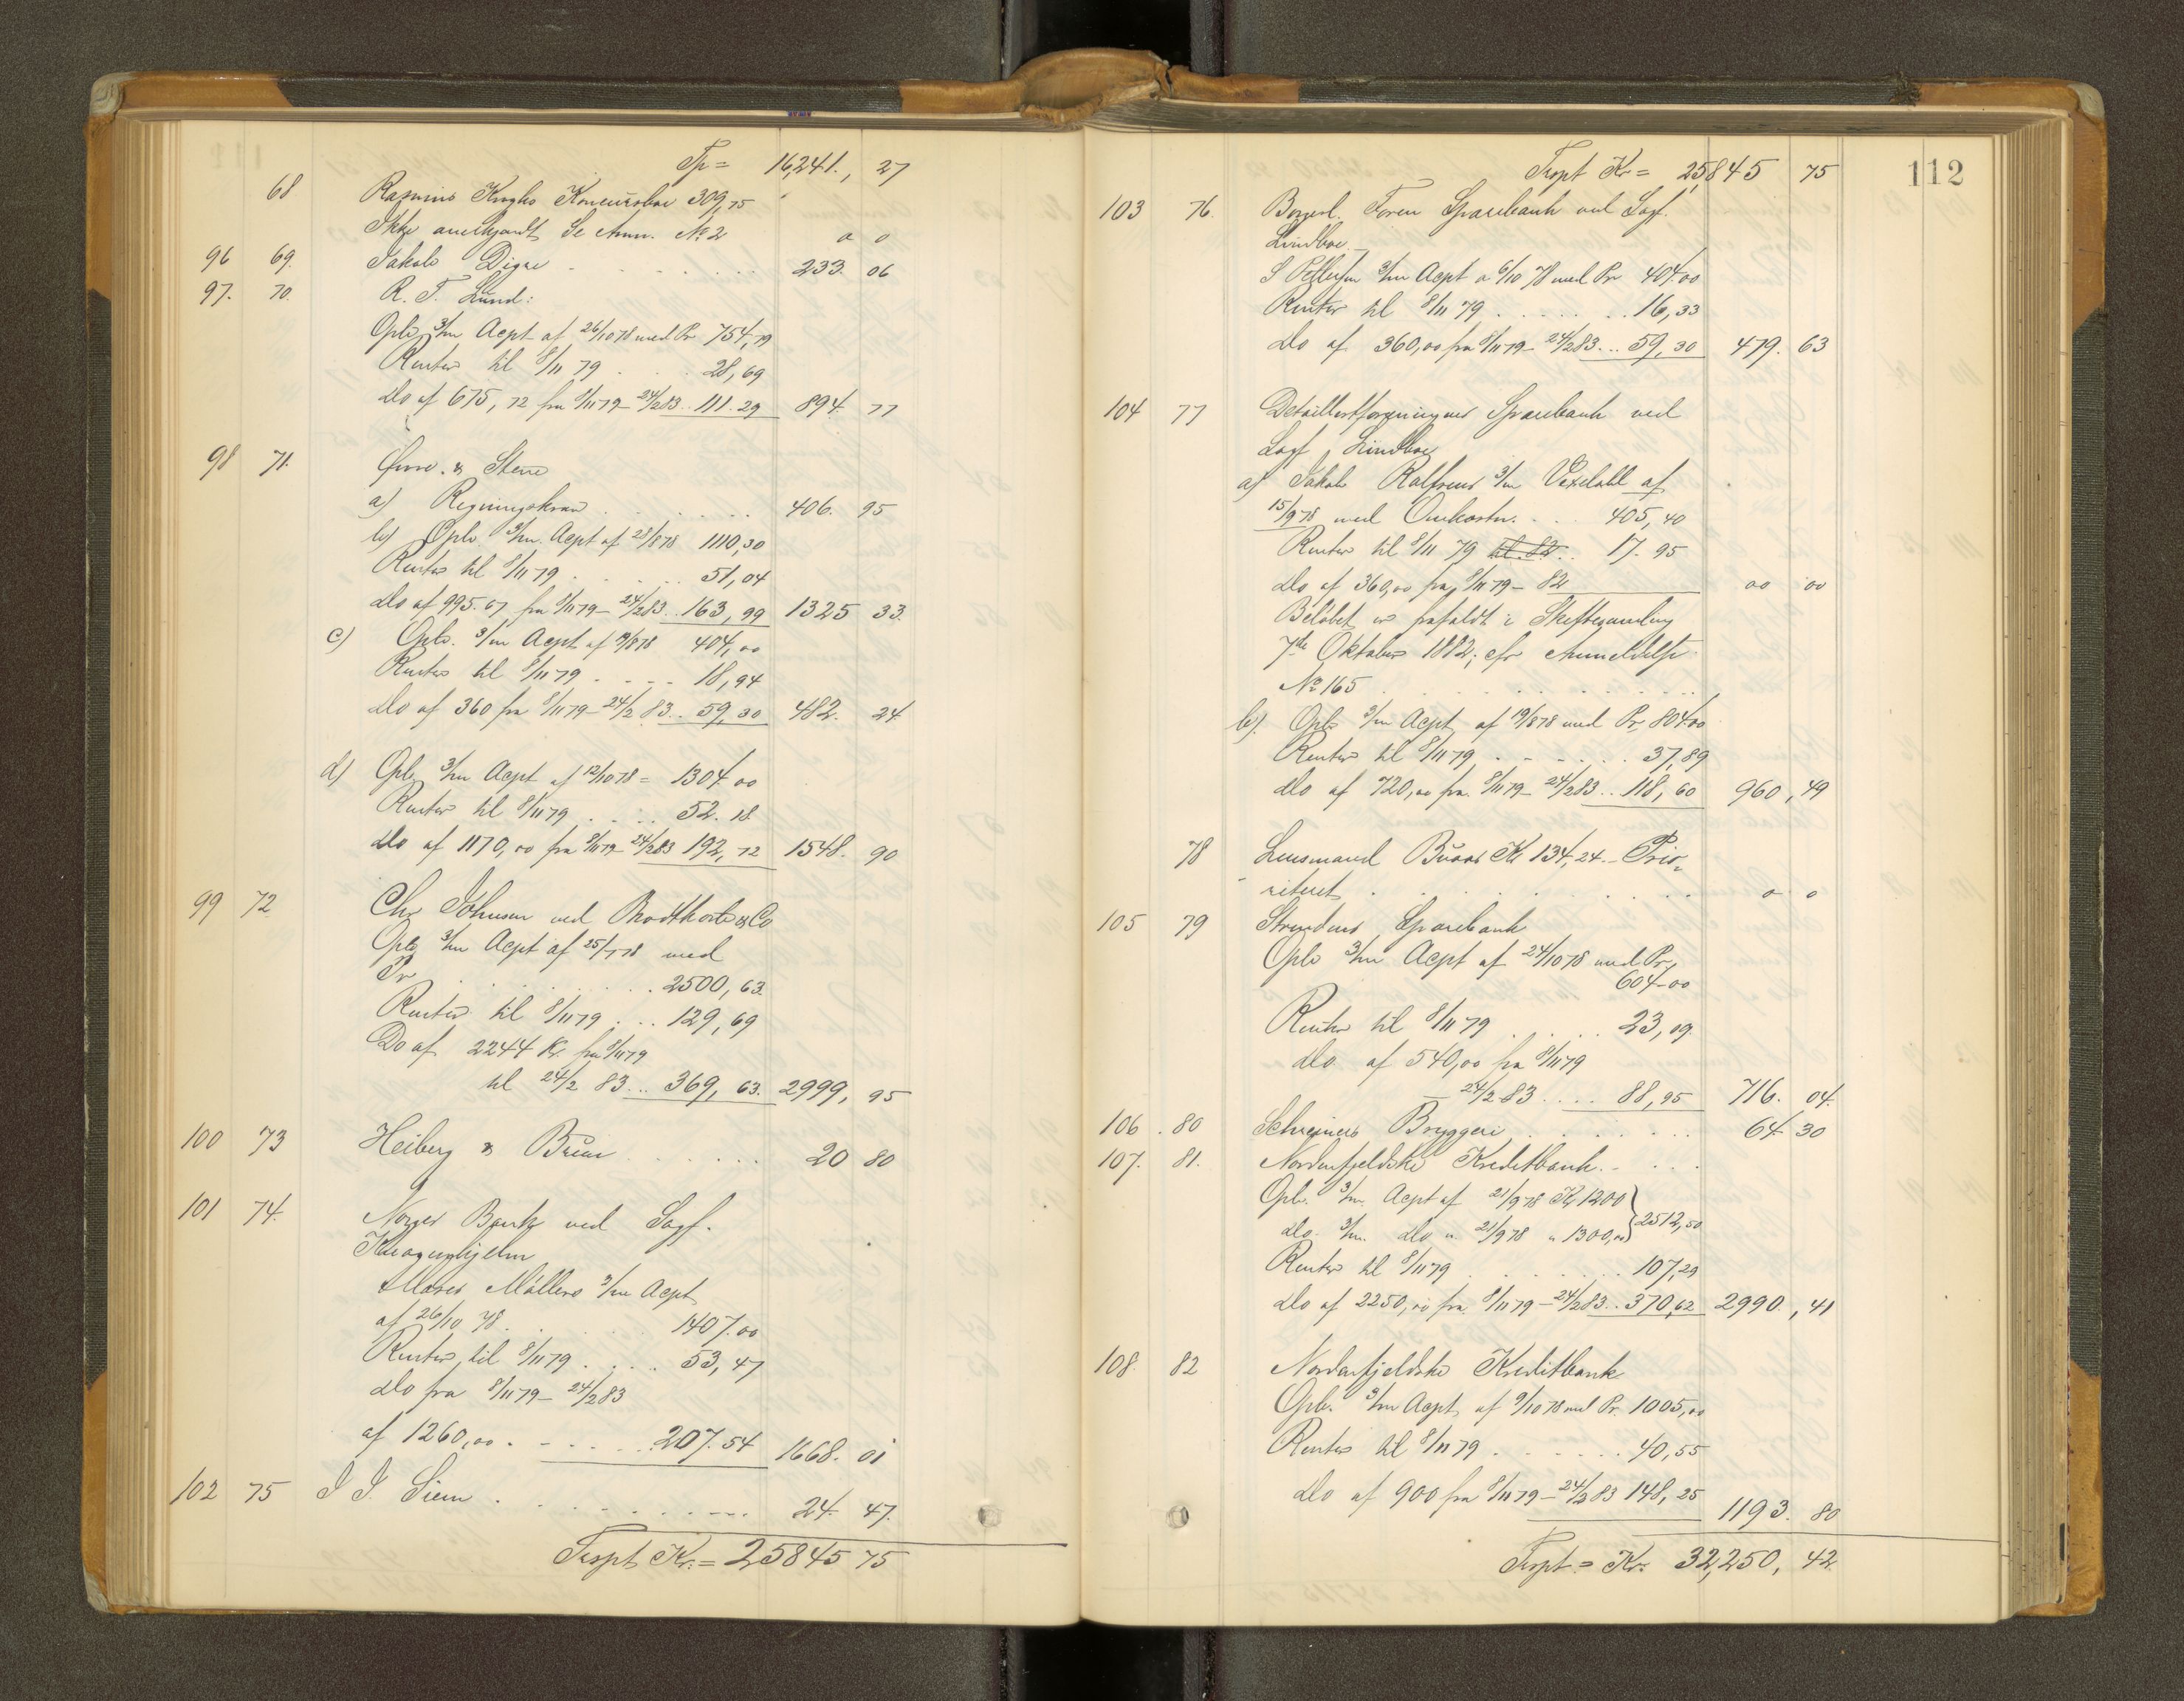 Tp = 16,241., 27
68 Rasmus Kroghs Koncursbo 309,75
Ikke anerkjendt Se Anm. No 2 0 0
96 69. Jakob Digre 233. 06
97. 70. R. F. Lund:
Opb 3/m Acpt af 26/10 78 med Pr 754,79
Renter til 8/11 79 28,69
do af 675,72 fra 8/11 79 - 24/2 83.. 111.29 894 77
98 71. & Steen
a) Regningskrav 406. 95
b) Opb. 3/m. Acpt af 28/8 78 1110,30
Renter til 8/11 79 51,04
do af 995.67 fra 8/11 79 - 24/2 83.. 163,99 1325 33.
c) Opb. 3/m Acpt af 19/8 78 404,00
Renter til 8/11 79 18,94
do af 360 fra 8/11 79 - 24/2 83.. 59,30 482. 24
d) Opb 3/m Acpt af 12/10 78 = 1304 00
Renter til 8/11 79 52.18
do af 1170,00 fra 8/11 79 - 24/2 83 192,72 1548. 90
99 72 Chr Johnsen ved Brodtkorb & Co
Opb 3/m Acpt af 25/7 78 med
Pr 2500,63
Renter til 8/11 79 129,69
Do af 2244 Kr. fra 8/11 79
til 24/2 83... 369,63. 2999, 95
100 73 Heiberg & Bruun 20 80
101 74. Norges Bank ved Sagf.
Møllers 3/m Acpt
af 26/10 78. 1407.00
Renter til 8/11 79 53,47
do fra 8/11 79 - 24/2 83
af 1260,00 207.54 1668. 01
102 75 I I. Siem 24. 47.
Trspt Kr. = 25845 75
Trspt Kr = 25,845 75 112
103 76. Borgerl. Foren Sparebank ved Sagf.
Lindboe
S Pettersen 3/m Acpt a 6/10 78 med Pr 404.00
Renter til 8/11 79 16,33
do af 360,00 fra 8/11 79 - 24/2 83... 59,30 479. 63
104 77 Detaillistforeningens Sparebank ved
Sagf Lindboe
a) Jakob Rolfsens 3/m Vexelobl af
15/9 78 med Omkostn. 405,40
Renter til 8/11 79 til 82.. 17.95
do af 360,00 fra 8/11 79 - 82 00 00
Beløbet er frafaldt i Skiftesamling
7de Oktober 1882; cfr Anmeldelse
No 165
b). Opb 3/m Acpt af 19/8 78 med Pr 804.00
Renter til 8/11 79 37,89
do af 720,00 fra 8/11 79 - 24/2 83.. 118,60 960,49
78 Lensmand Buaas Kr 134,24. - Prio-
riteret 0 0
105 79 Strindens Sparebank
Opb 3/m Acpt af 24/10 78 med Pr
604-00
Renter til 8/11 79 23,09.
do af 540,00 fra 8/11 79
- 24/2 83 .... 88,95 716. 04.
106. 80 Schreiners Bryggeri 64 30
107. 81. Nordenfjeldske Kreditbank
Opb. 3/m. Acpt af 21/9 78 Kr 1200
do. 3/m. do a 21/9 78 " 1300,00 2512,50
Renter til 8/11 79 107,29
do af 2250,00 fra 8/11 79 - 24/2 83.. 370,62 2990., 41
108. 82 Nordenfjeldske Kreditbank
Opb. 3/m Acpt af 9/10 78 med Pr. 1005,00
Renter til 8/11 79 40,55
do af 900 fra 8/11 79 - 24/2 83 148,25 1193. 80
Trspt. = Kr. 32,250, 42